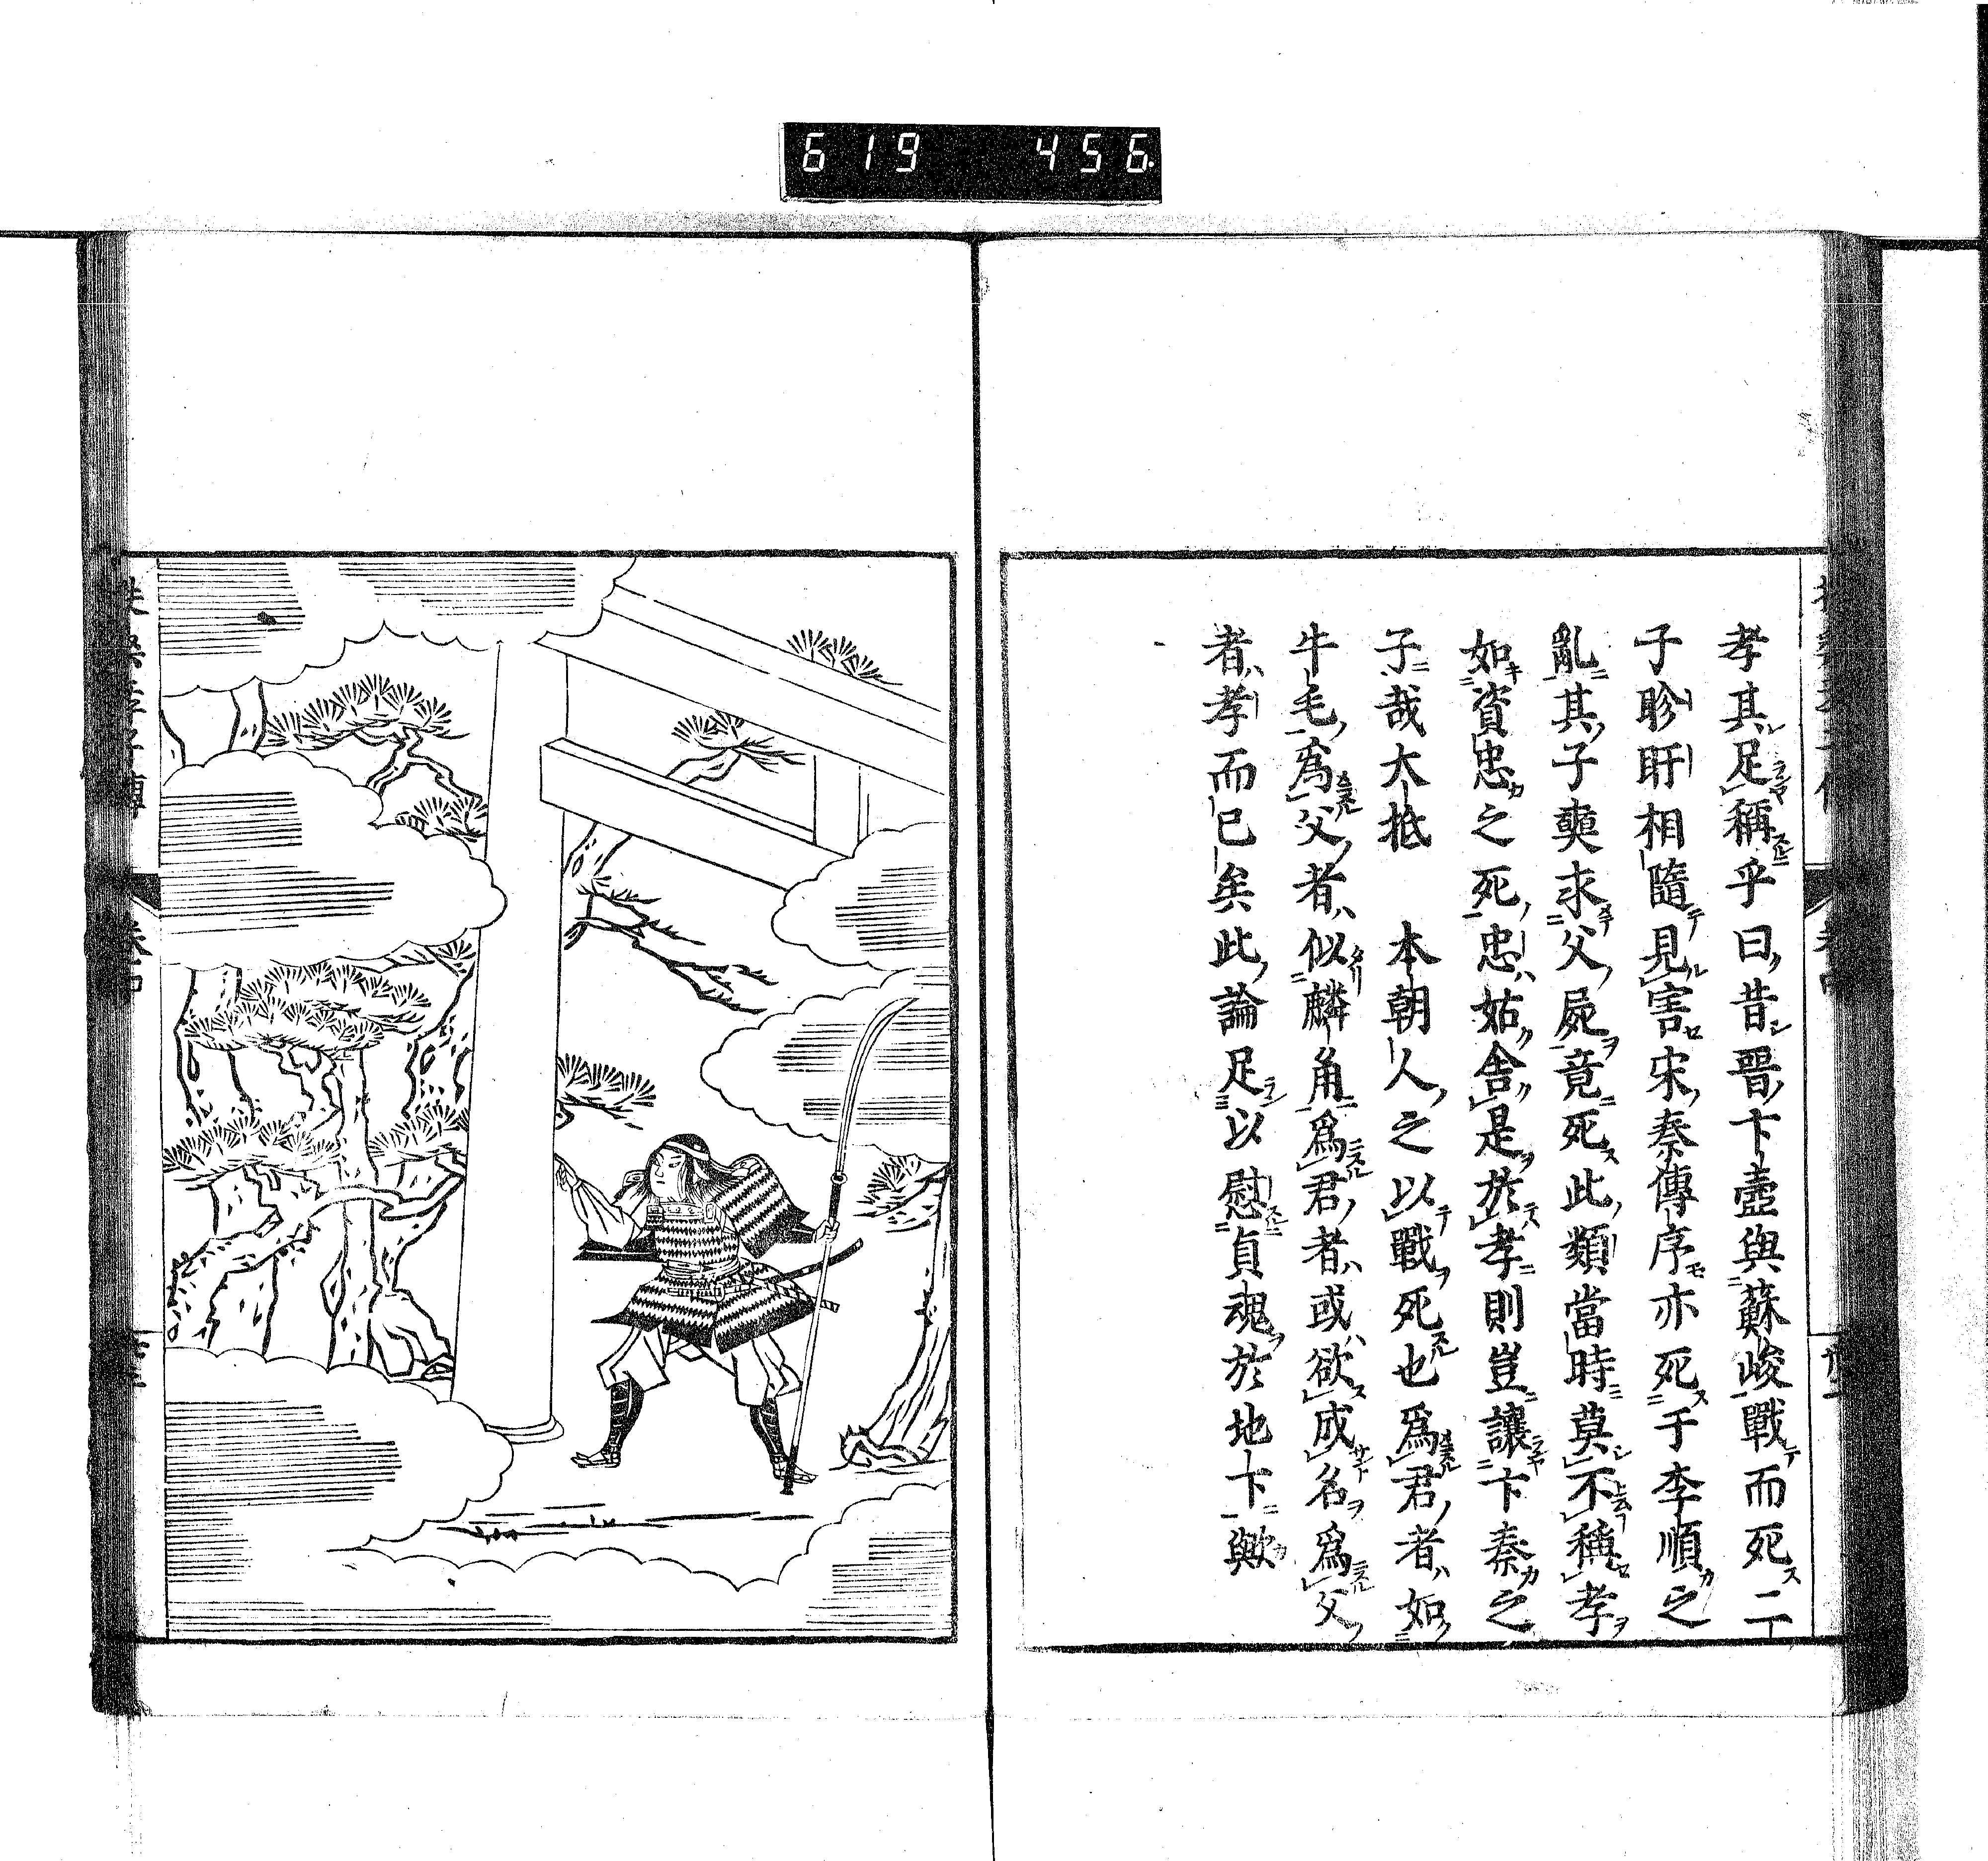 619 456
孝其足稱乎曰昔晉卞壼與蘇峻戰而死二
子眕盱相隨見害宋秦傳序亦死于李順之
亂其子奭求父屍竟死此類當時莫不稱孝
如資忠之死忠姑舍是於孝則豈讓卞秦之
子哉大抵 本朝人之以戰死也爲君者如
牛毛爲父者似麟角爲君者或欲成名爲父
者孝而已矣此論足以慰貞魂於地下歟